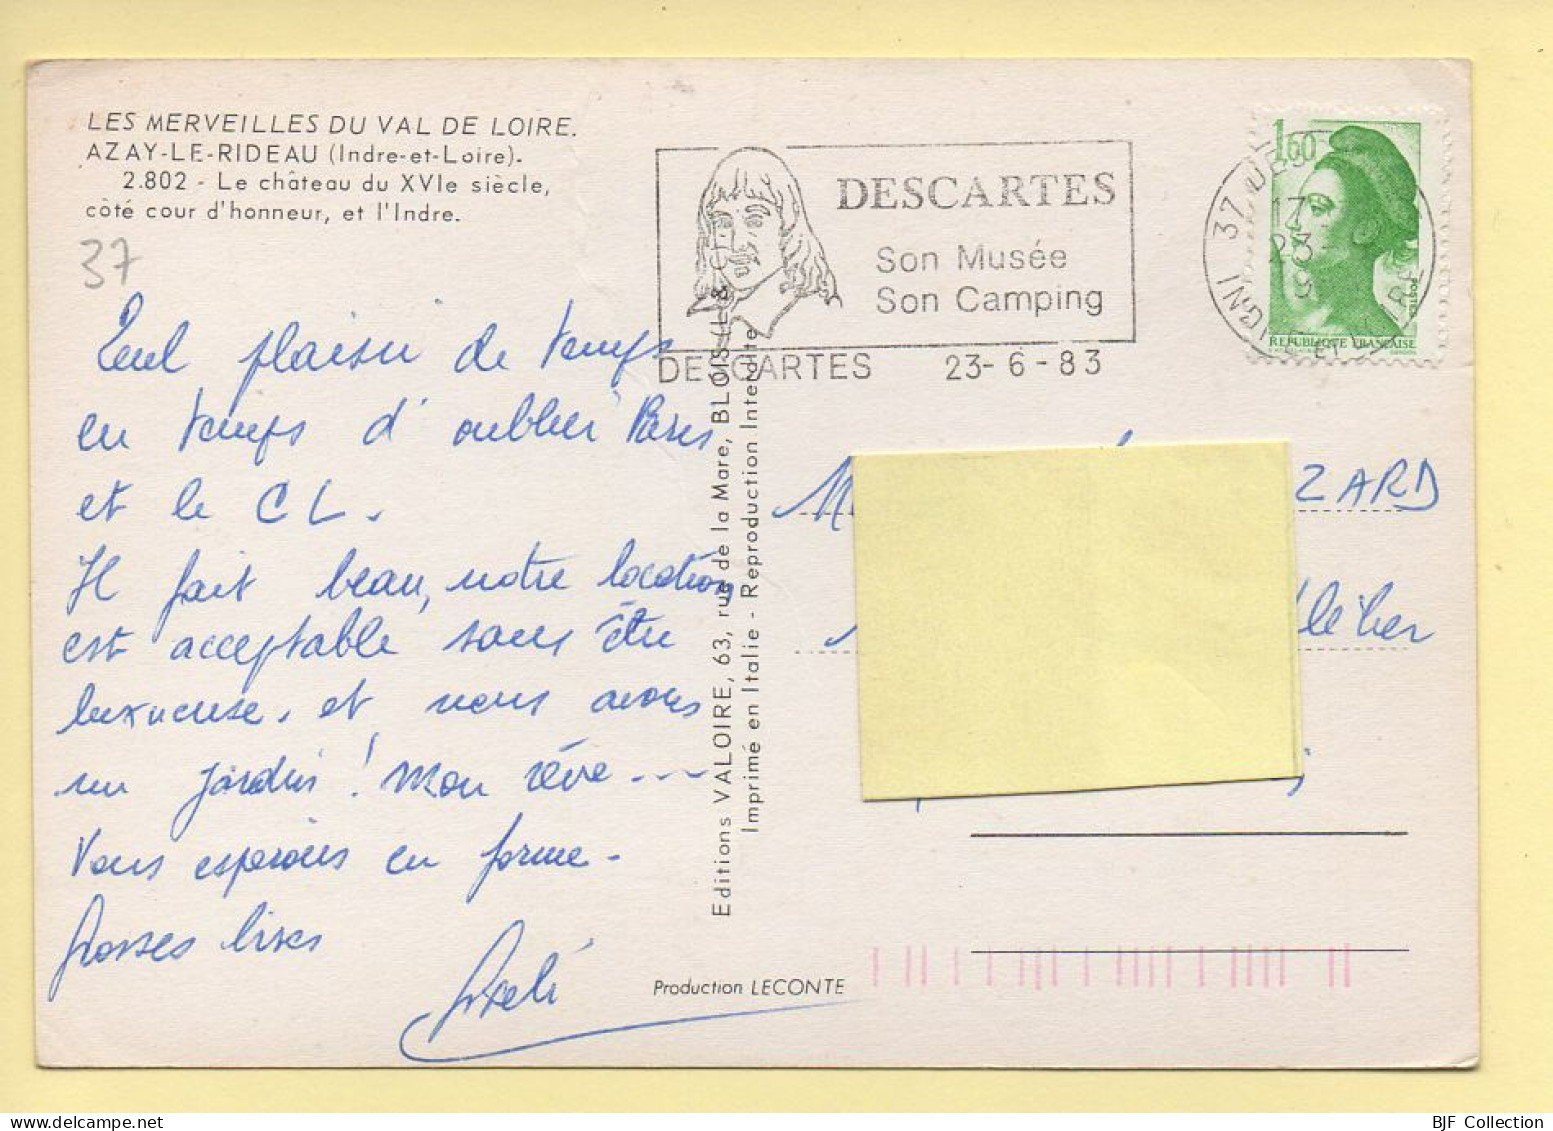 LES MERVEILLES DU VAL DE LOIRE.
AZAY-LE-RIDEAU (Indre-et-Loire).
2.802 - Le château du XVIe siècle,
côté cour d'honneur, et l'Indre.
37
plaisir de temps
en temps d'oublier Paris
et le CL.
Il fait beau, notre location
est acceptable sans être
luxueuse, et nous avons
un jardin ! Mon rêve ---
Vous espérons en forme.
Grosses bises
Editions VALOIRE, 63, rue de la Mare, BLOIS (L. & C.)
Imprimé en Italie - Reproduction Interdite
Production LECONTE
DESCARTES
Son Musée
Son Camping
DESCARTES 23-6-83
37 DES
17
23
INDRE ET LOIRE
1,60
POSTES
REPUBLIQUE FRANÇAISE
ZARD
BJF Collection